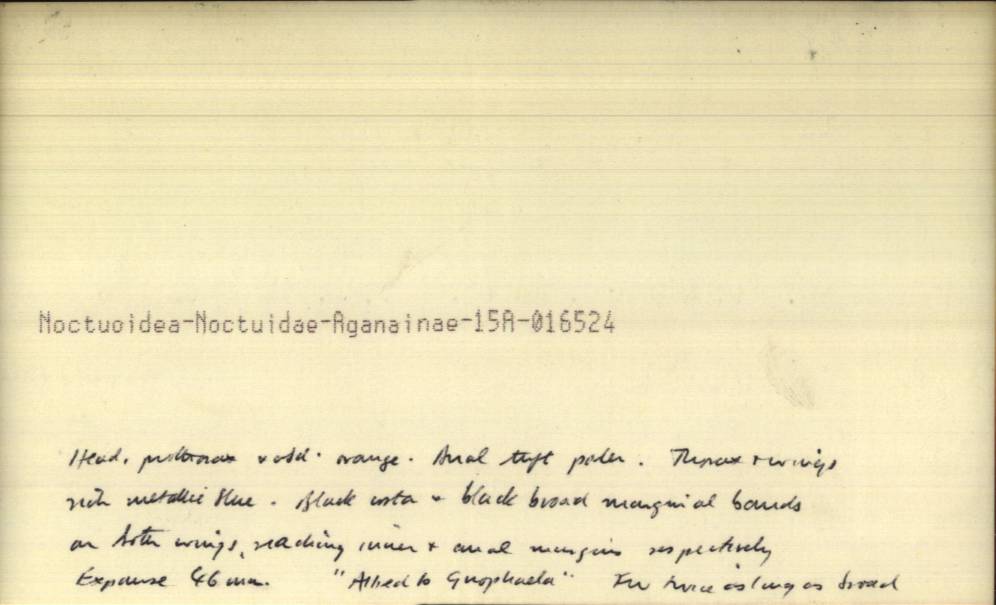 Noctuoidea-Noctuidae-Aganainae-15A-016524
Head, prothorax & abd. orange. Anal tuft paler. Thorax & wings
rich metallic blue. Black costa & black broad marginal bands
on both wings, reaching inner & anal margins respectively
Expanse 46 mm. "Allied to Gnophaela" FW twice as long as broad